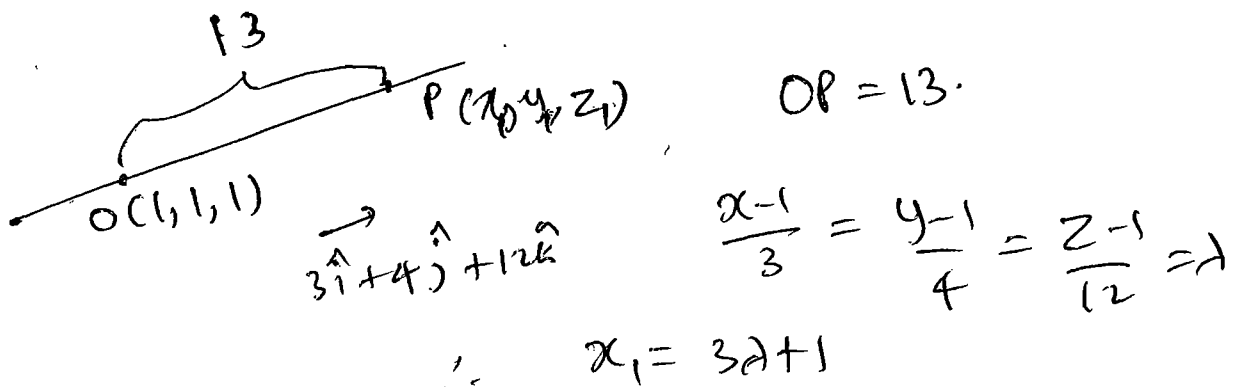 13
P (x₁, y₁, z₁) OP = 13.
O(1, 1, 1)
3î + 4ĵ + 12k̂
(x-1)/3 = (y-1)/4 = (z-1)/12 = λ
∴ x₁ = 3λ + 1